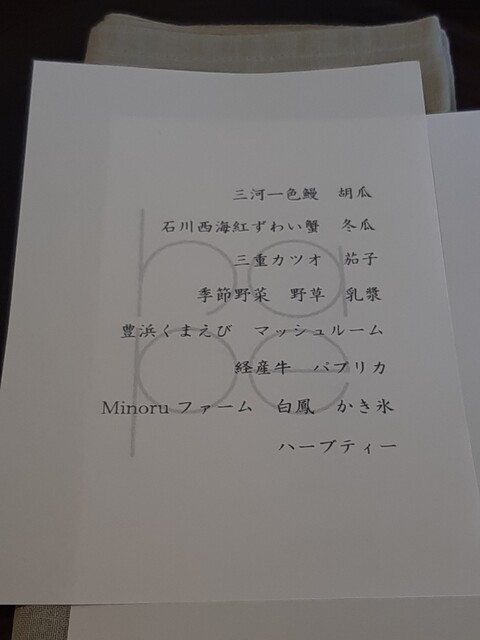 三河一色鰻　胡瓜
石川西海紅ずわい蟹　冬瓜
三重カツオ　茄子
季節野菜　野草　乳漿
豊浜くまえび　マッシュルーム
経産牛　パプリカ
Minoru ファーム　白鳳　かき氷
ハーブティー
ha
pe